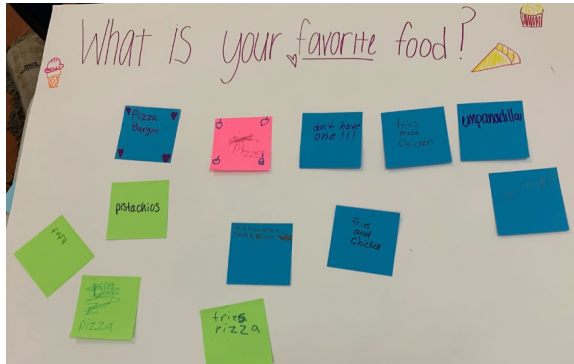 What is your favorite food?
Pizza
Burger
pizza
don't have
one!!!
fries
pizza
Chicken
empanadillas
pistachios
fries
and
Chicken
pizza
fries
pizza